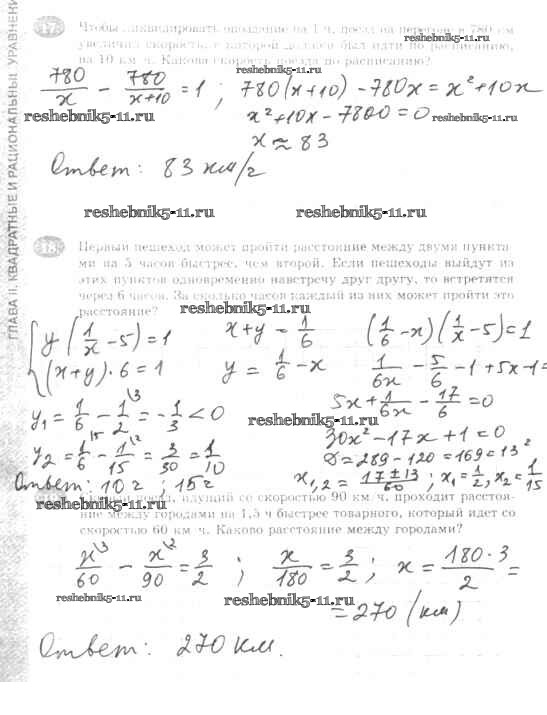 ГЛАВА II. КВАДРАТНЫЕ И РАЦИОНАЛЬНЫЕ УРАВНЕНИЯ
17 Чтобы ликвидировать опоздание на 1 ч, поезд на перегоне в 780 км
увеличил скорость, с которой должен был идти по расписанию,
на 10 км/ч. Какова скорость поезда по расписанию?
reshebnik5-11.ru
780/x - 780/(x+10) = 1 ; 780(x+10) - 780x = x²+10x
reshebnik5-11.ru
x²+10x-7800=0
reshebnik5-11.ru
x ≈ 83
Ответ: 83 км/ч
reshebnik5-11.ru reshebnik5-11.ru
18 Первый пешеход может пройти расстояние между двумя пункта-
ми на 5 часов быстрее, чем второй. Если пешеходы выйдут из
этих пунктов одновременно навстречу друг другу, то встретятся
через 6 часов. За сколько часов каждый из них может пройти это
расстояние?
reshebnik5-11.ru
{ y(1/x - 5) = 1 x+y = 1/6 (1/6 - x)(1/x - 5) = 1
(x+y)·6 = 1 y = 1/6 - x 1/6x - 5/6 - 1 + 5x - 1=
y₁ = 1/6 - 1/2 = -1/3 < 0 5x + 1/6x - 17/6 = 0
reshebnik5-11.ru
30x² - 17x + 1 = 0
y₂ = 1/6 - 1/15 = 3/30 = 1/10 D = 289 - 120 = 169 = 13²
Ответ: 10 ч ; 15 ч x₁,₂ = (17 ± 13)/60 ; x₁ = 1/2, x₂ = 1/15
reshebnik5-11.ru
поезд, идущий со скоростью 90 км/ч, проходит расстоя-
ние между городами на 1,5 ч быстрее товарного, который идет со
скоростью 60 км/ч. Каково расстояние между городами?
x/60 - x/90 = 3/2 ; x/180 = 3/2 ; x = 180·3/2 =
reshebnik5-11.ru reshebnik5-11.ru
= 270 (км)
Ответ: 270 км.